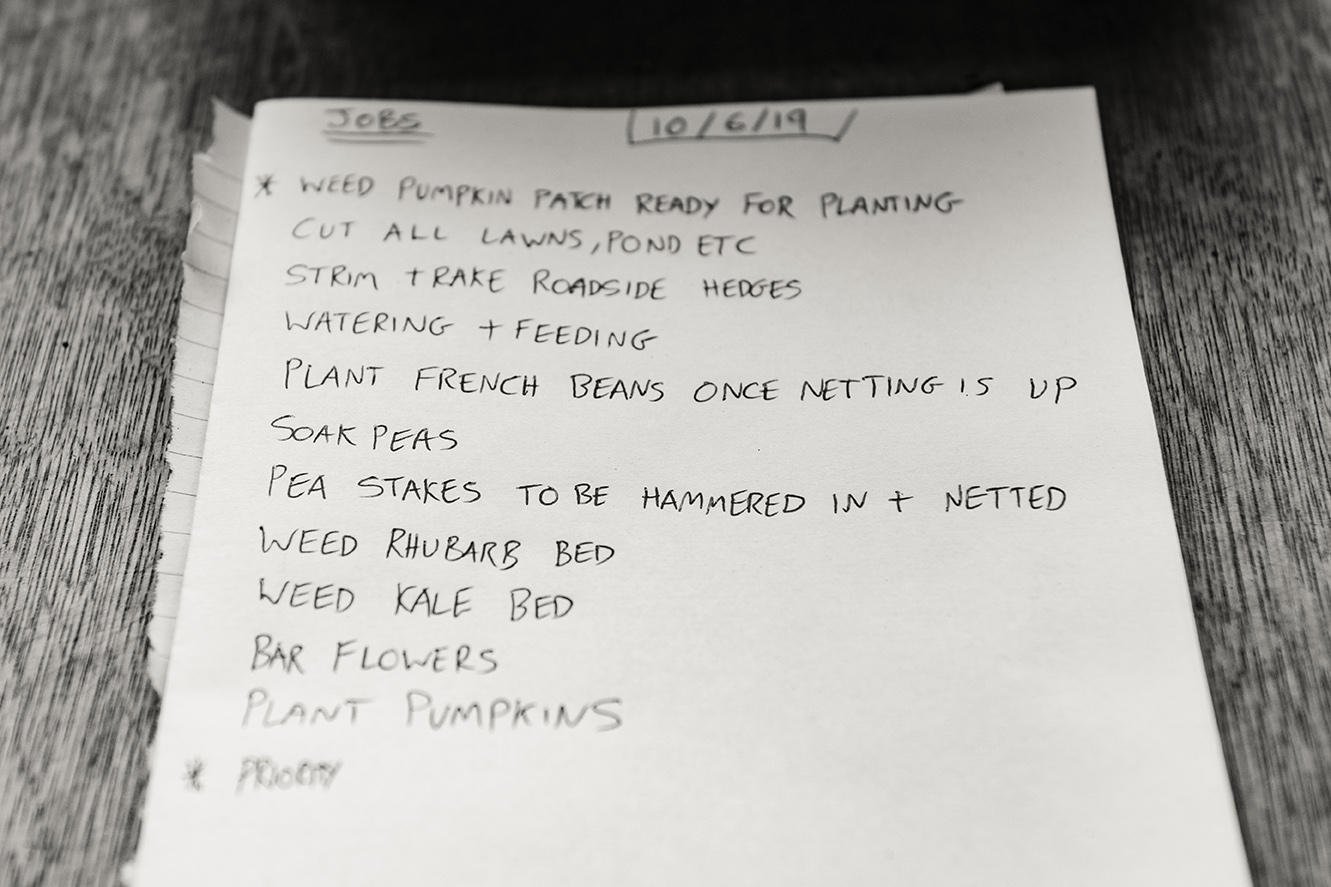 JOBS 10/6/19
* WEED PUMPKIN PATCH READY FOR PLANTING
CUT ALL LAWNS, POND ETC
STRIM + RAKE ROADSIDE HEDGES
WATERING + FEEDING
PLANT FRENCH BEANS ONCE NETTING IS UP
SOAK PEAS
PEA STAKES TO BE HAMMERED IN + NETTED
WEED RHUBARB BED
WEED KALE BED
BAR FLOWERS
PLANT PUMPKINS
* PRIORITY